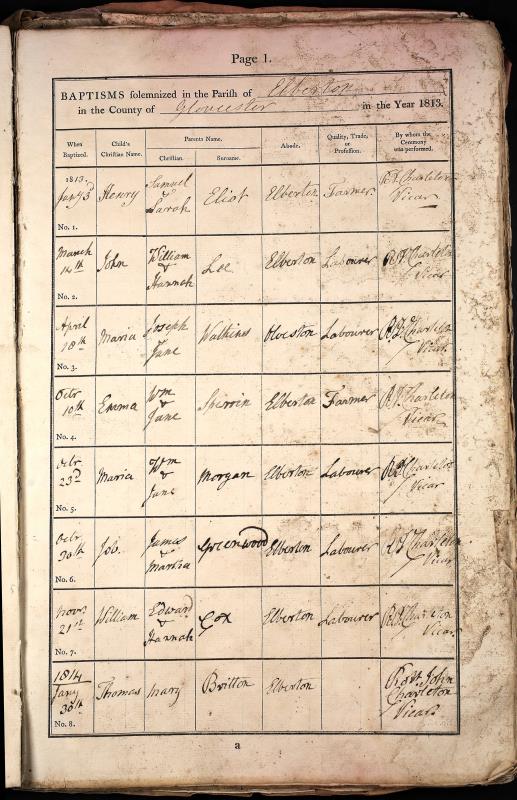 Page 1.
BAPTISMS solemnized in the Parish of Elberton
in the County of Gloucester in the Year 1813.
When Baptized. Child's Christian Name. Parents Name. Christian. Surname. Abode. Quality, Trade, or Profession. By whom the Ceremony was performed.
1813. Jany 3d Henry Samuel & Sarah Eliot Elberton Farmer Charleton Vicar
No. 1.
March 14th John William & Hannah Lee Elberton Labourer Charleton Vicar
No. 2.
April 18th Maria Joseph Jane Watkins Olveston Labourer R J Charleton Vicar
No. 3.
Octr 10th Emma Wm & Jane Spirrin Elberton Farmer R J Charleton Vicar
No. 4.
Octr 23d Maria Wm & Jane Morgan Elberton Labourer Charleton Vicar
No. 5.
Octr 30th Job. James & Martha Greenwood Elberton Labourer R J Charleton Vicar
No. 6.
Novr 21st William Edward & Hannah Cox Elberton Labourer R J Charleton Vicar
No. 7.
1814 Jany 30th Thomas Mary Britton Elberton Robt. John Charleton Vicar
No. 8.
a